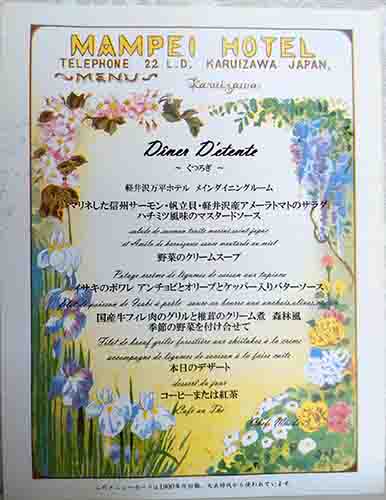 MAMPEI HOTEL
TELEPHONE 22 L.D. KARUIZAWA JAPAN.
MENU
Karuizawa
Dîner D'etente
~ くつろぎ ~
軽井沢万平ホテル メインダイニングルーム
マリネした信州サーモン・帆立貝・軽井沢産アメーラトマトのサラダ
ハチミツ風味のマスタードソース
salade de saumon traite marine, saint-jaque
et Amela de karuizawa sauce moutarde au miel
野菜のクリームスープ
Potage crème de légumes de saison aux tapioca
イサキのポワレ アンチョビとオリーブとケッパー入りバターソース
国産牛フィレ肉のグリルと椎茸のクリーム煮 森林風
季節の野菜を付け合せて
Filet de bœuf grillé forestière aux shiitakes à la crème
accompagné de légumes de saison à la faire cuite
本日のデザート
dessert du jour
コーヒーまたは紅茶
Café ou Thé